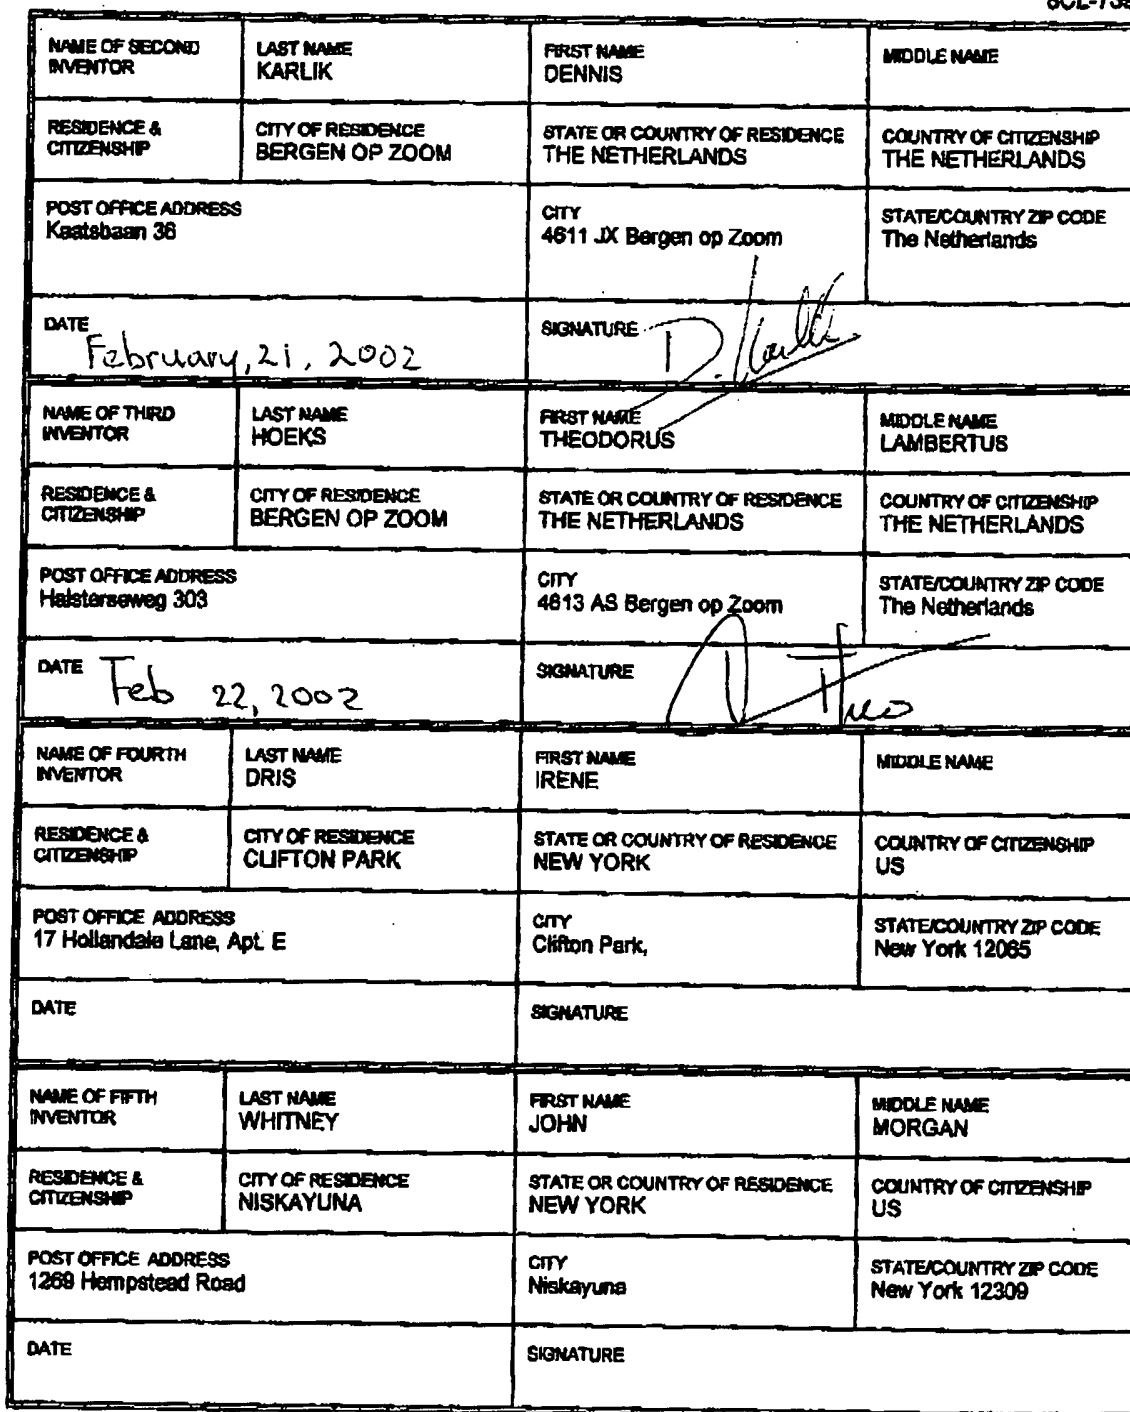 NAME OF SECOND INVENTOR
LAST NAME
KARLIK
FIRST NAME
DENNIS
MIDDLE NAME
RESIDENCE & CITIZENSHIP
CITY OF RESIDENCE
BERGEN OP ZOOM
STATE OR COUNTRY OF RESIDENCE
THE NETHERLANDS
COUNTRY OF CITIZENSHIP
THE NETHERLANDS
POST OFFICE ADDRESS
Kaatsbaan 36
CITY
4611 JX Bergen op Zoom
STATE/COUNTRY ZIP CODE
The Netherlands
DATE
February, 21, 2002
SIGNATURE
D. Karlik
NAME OF THIRD INVENTOR
LAST NAME
HOEKS
FIRST NAME
THEODORUS
MIDDLE NAME
LAMBERTUS
RESIDENCE & CITIZENSHIP
CITY OF RESIDENCE
BERGEN OP ZOOM
STATE OR COUNTRY OF RESIDENCE
THE NETHERLANDS
COUNTRY OF CITIZENSHIP
THE NETHERLANDS
POST OFFICE ADDRESS
Halsterseweg 303
CITY
4613 AS Bergen op Zoom
STATE/COUNTRY ZIP CODE
The Netherlands
DATE
Feb 22, 2002
SIGNATURE
NAME OF FOURTH INVENTOR
LAST NAME
DRIS
FIRST NAME
IRENE
MIDDLE NAME
RESIDENCE & CITIZENSHIP
CITY OF RESIDENCE
CLIFTON PARK
STATE OR COUNTRY OF RESIDENCE
NEW YORK
COUNTRY OF CITIZENSHIP
US
POST OFFICE ADDRESS
17 Hollandale Lane, Apt. E
CITY
Clifton Park,
STATE/COUNTRY ZIP CODE
New York 12065
DATE
SIGNATURE
NAME OF FIFTH INVENTOR
LAST NAME
WHITNEY
FIRST NAME
JOHN
MIDDLE NAME
MORGAN
RESIDENCE & CITIZENSHIP
CITY OF RESIDENCE
NISKAYUNA
STATE OR COUNTRY OF RESIDENCE
NEW YORK
COUNTRY OF CITIZENSHIP
US
POST OFFICE ADDRESS
1269 Hempstead Road
CITY
Niskayuna
STATE/COUNTRY ZIP CODE
New York 12309
DATE
SIGNATURE